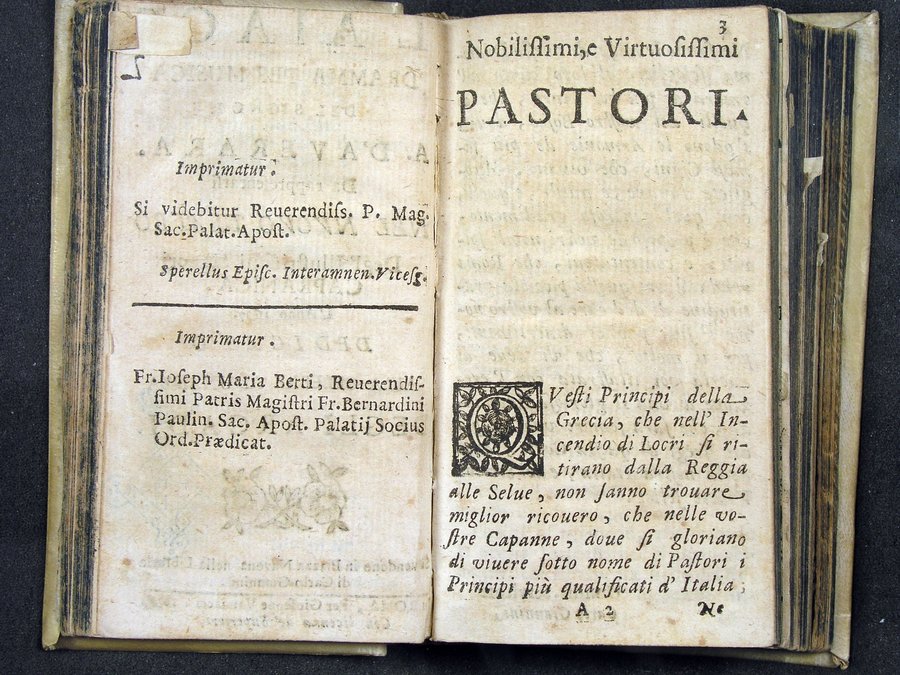 2
Imprimatur.
Si videbitur Reuerendiſs. P. Mag.
Sac.Palat.Apoſt.
Sperellus Epiſc. Interamnen.Viceſg.
Imprimatur.
Fr.Ioſeph Maria Berti, Reuerendiſ-
ſimi Patris Magiſtri Fr.Bernardini
Paulin. Sac. Apoſt. Palatij Socius
Ord.Prædicat.
3
Nobiliſſimi,e Virtuoſiſſimi
PASTORI.
QVeſti Principi della
Grecia, che nell' In-
cendio di Locri ſi ri-
tirano dalla Reggia
alle Selue, non ſanno trouare
miglior ricouero, che nelle vo-
ſtre Capanne, doue ſi gloriano
di viuere ſotto nome di Paſtori i
Principi più qualificati d' Italia;
A 2 Ne